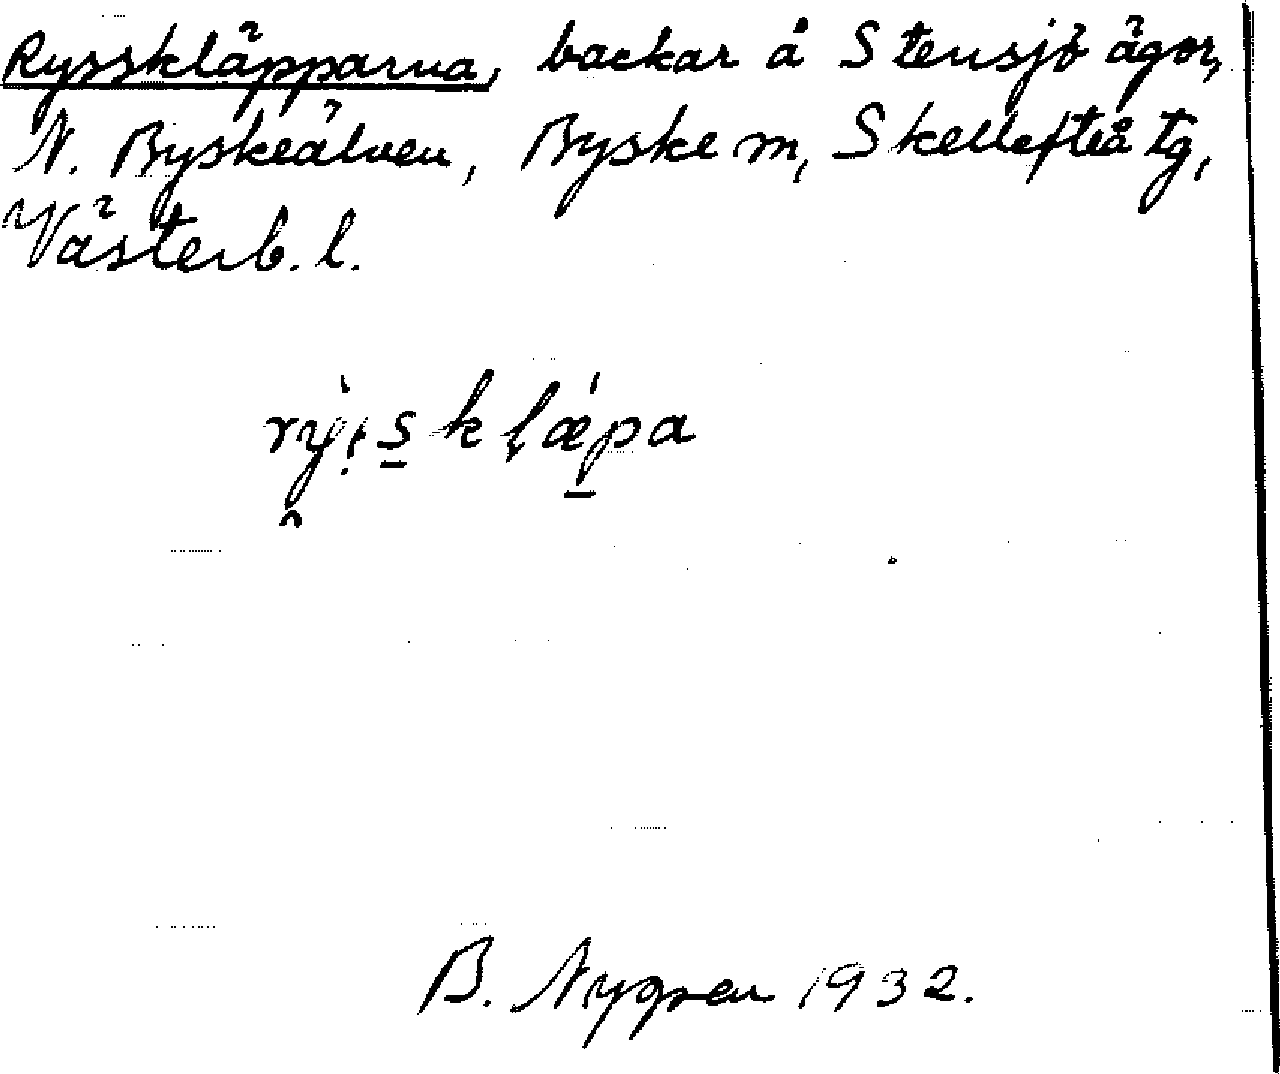 Rysskläpparna, backar å Stensjö ägor,
N. Byskeälven, Byske m, Skellefteå tg,
Västerb. l.
rỳi̭s̲klǽ̲pa
B. Nygren 1932.